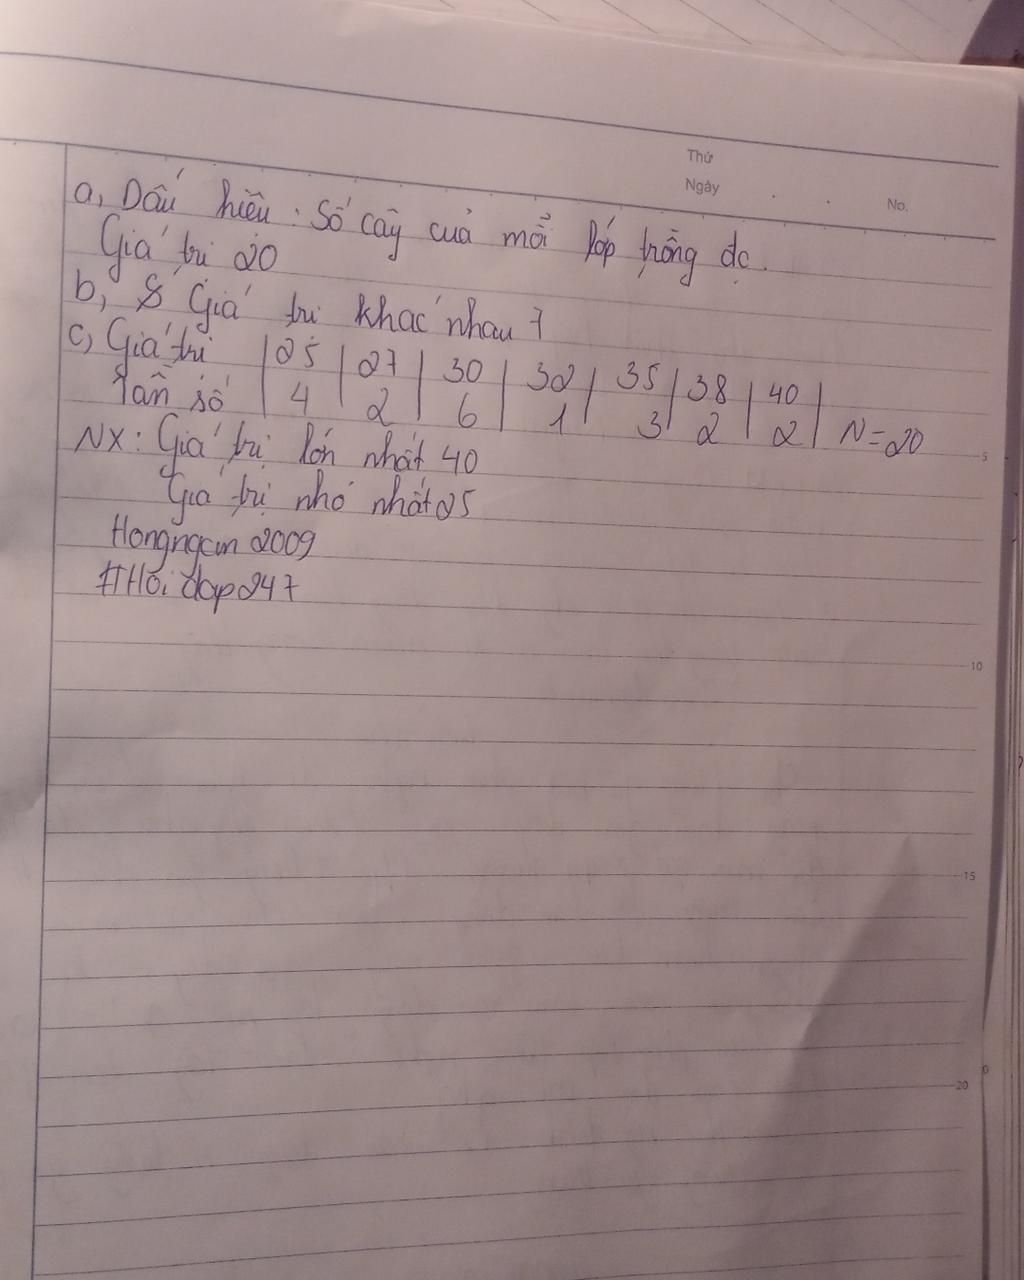 Thứ
Ngày
No.
a, Dấu hiệu: Số cây của mỗi lớp trồng đc.
Giá trị 20
b, Giá trị khác nhau 7
c, Giá trị | 25 | 27 | 30 | 32 | 35 | 38 | 40 |
Tần số | 4 | 2 | 6 | 1 | 3 | 2 | 2 | N=20
NX: Giá trị lớn nhất 40
Giá trị nhỏ nhất 25
Hongngan 2009
#Hỏi đap247
5
10
15
20